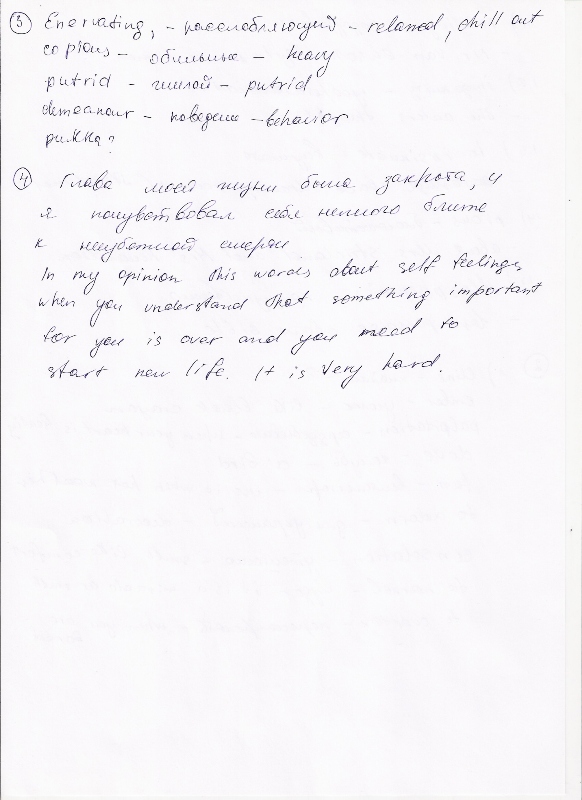 ③ Enervating, - расслабляющий - relaxed, chill out
copious - обильные - heavy
putrid - гнилой - putrid
demeanour - поведение - behavior
рикка?
④ Глава моей жизни была закрыта, и
я почувствовал себя немного ближе
к неизбежной смерти
In my opinion this words about self feelings
when you understand that something important
for you is over and you need to
start new life. It is very hard.